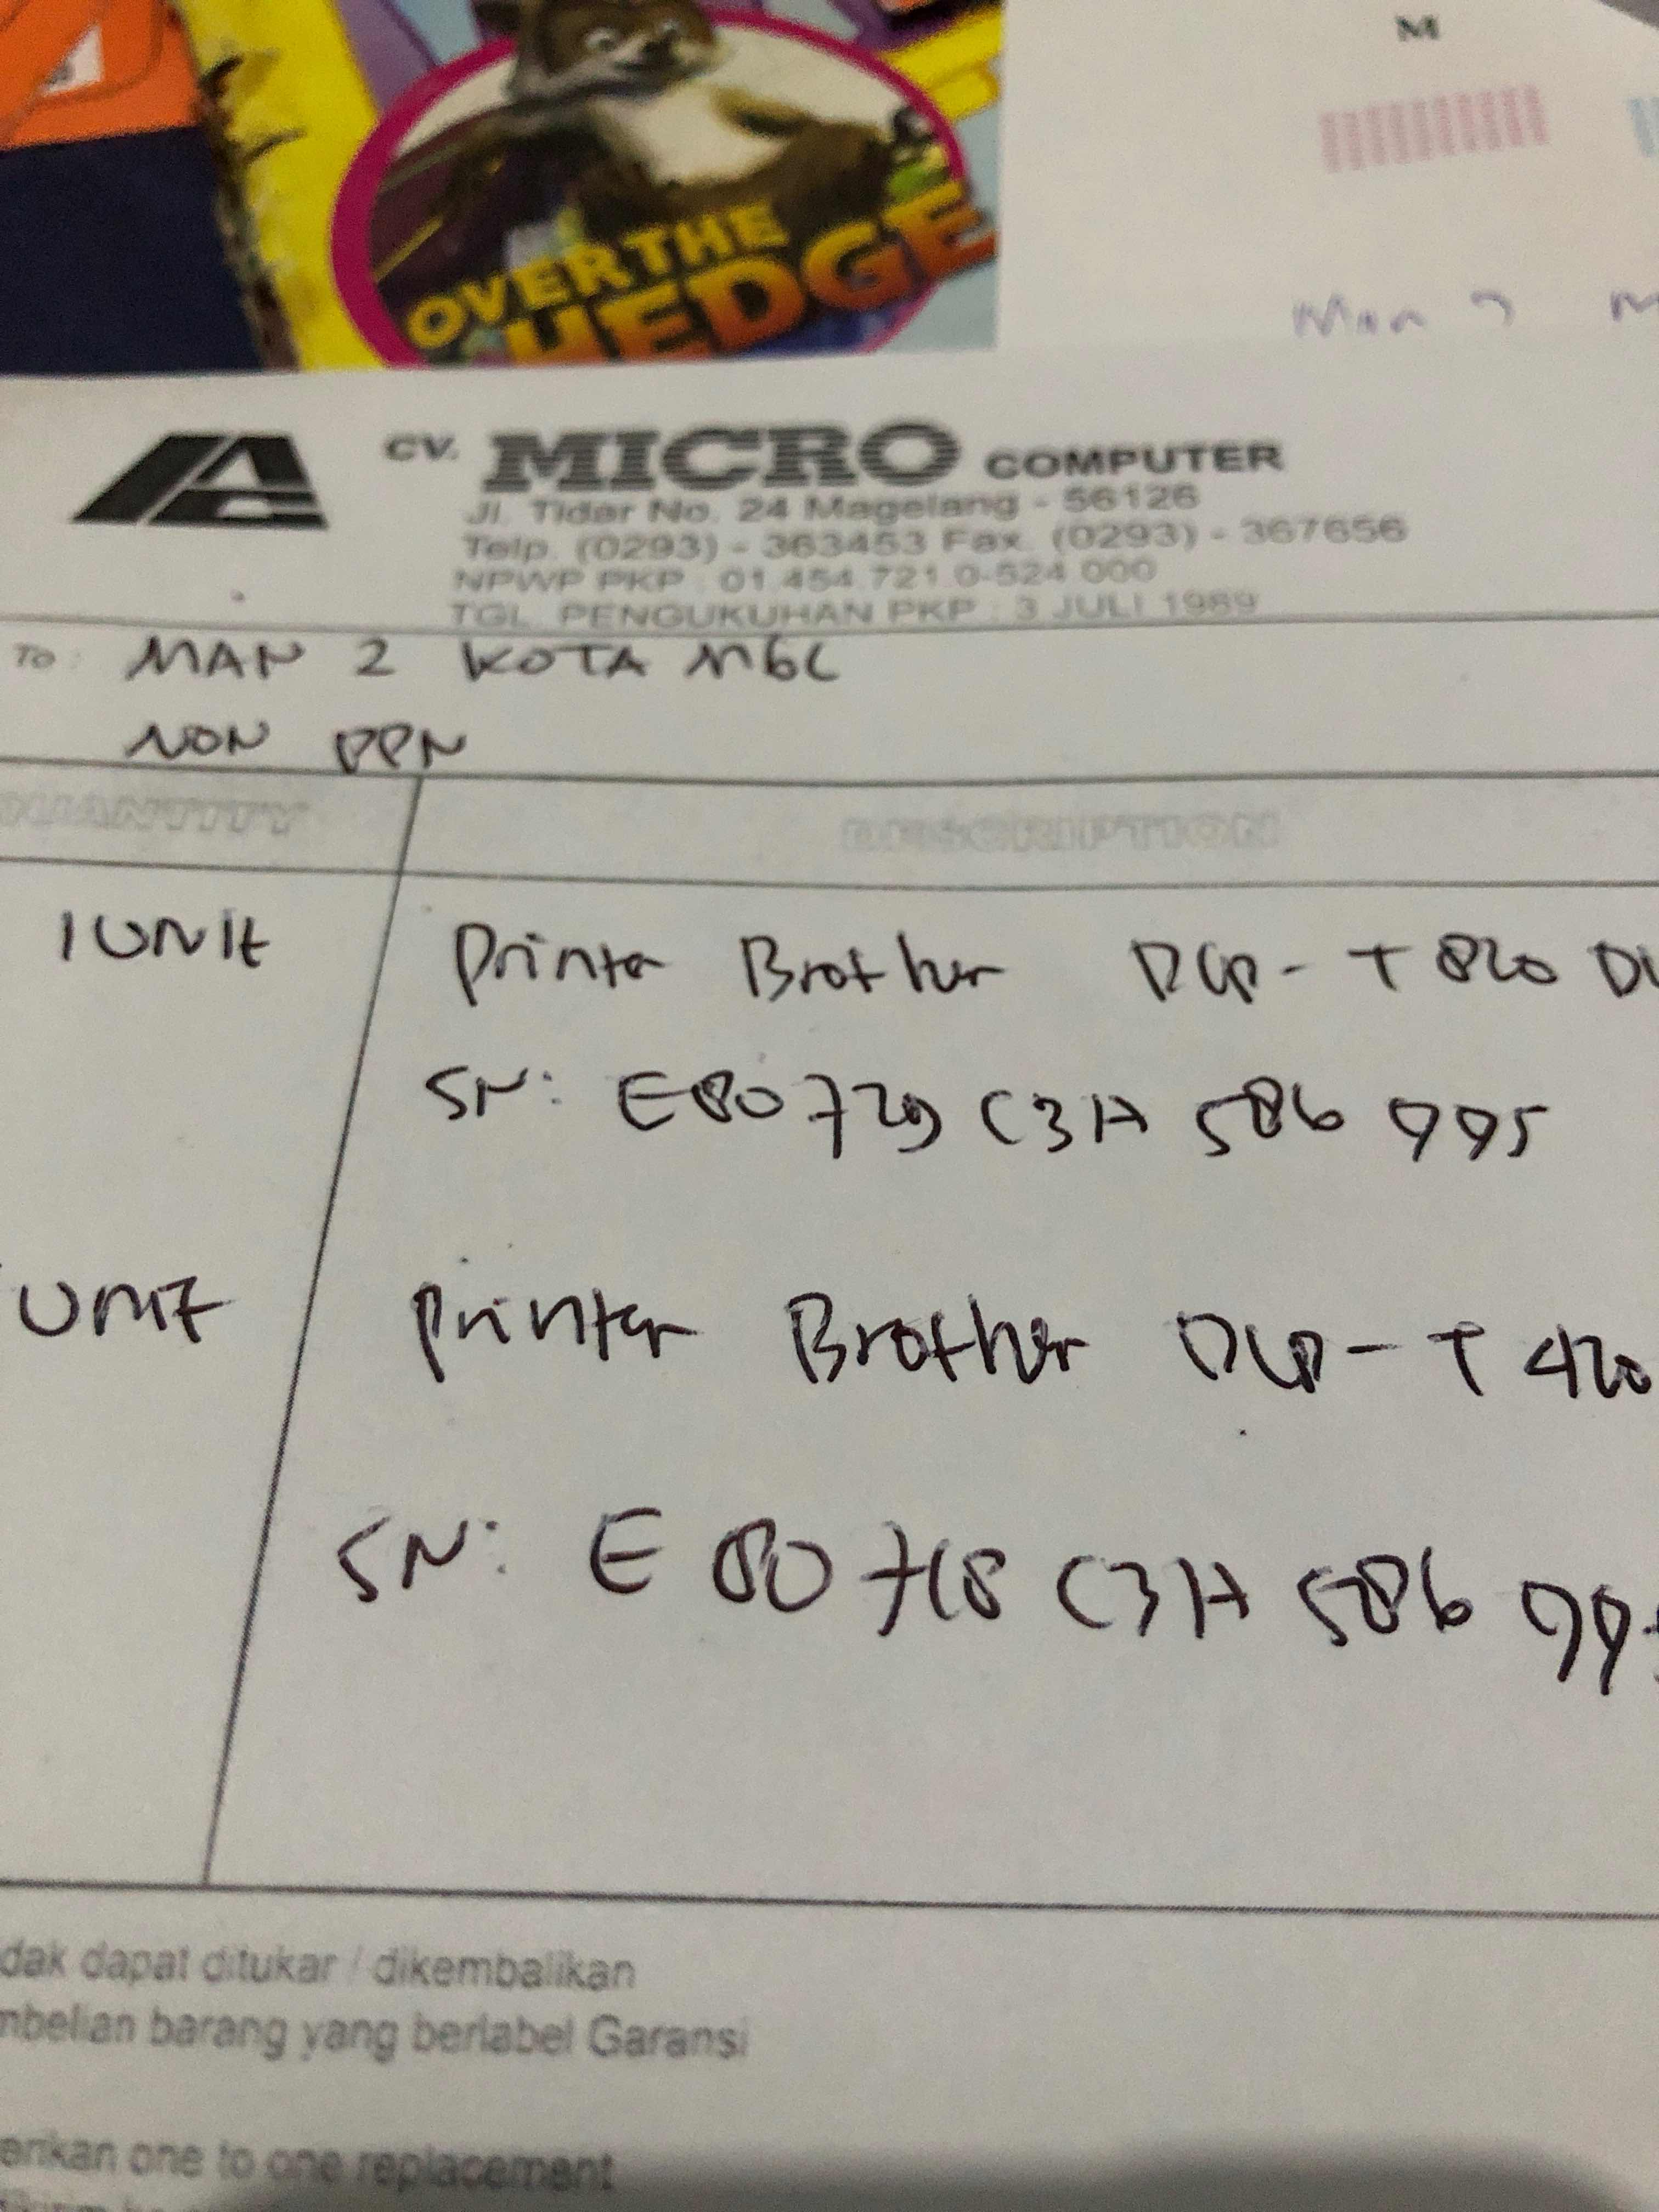 M
OVER THE
HEDGE
Man 2
CV. MICRO COMPUTER
Jl. Tidar No. 24 Magelang - 56126
Telp. (0293) - 363453 Fax. (0293) - 367656
NPWP PKP : 01.454.721.0-524.000
TGL. PENGUKUHAN PKP : 3 JULI 1989
To : MAN 2 KOTA MGL
NON PPN
QUANTITY DESCRIPTION
1 UNIt Printer Brother DCP-T820 DW
SN: E80729C3H586995
UNIT Printer Brother DCP-T420
SN: E80718C3H58699
dak dapat ditukar / dikembalikan
mbelian barang yang berlabel Garansi
erikan one to one replacement